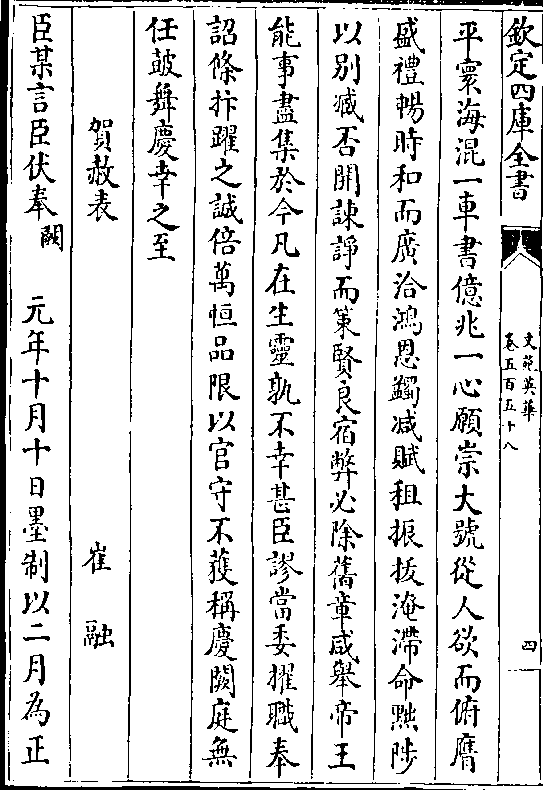 欽定四庫全書
文苑英華
卷五百五十八
四
平寰海混一車書億兆一心願崇大號從人欲而俯膺
盛禮暢時和而廣洽鴻恩蠲减賦租振拔淹滯命黜陟
以别臧否開諫諍而策賢良宿弊必除舊章咸舉帝王
能事盡集於今凡在生靈孰不幸甚臣謬當委擢職奉
詔條抃躍之誠倍萬恒品限以官守不獲稱慶闕庭無
任鼓舞慶幸之至
賀赦表
崔融
臣某言臣伏奉闕元年十月十日墨制以二月為正